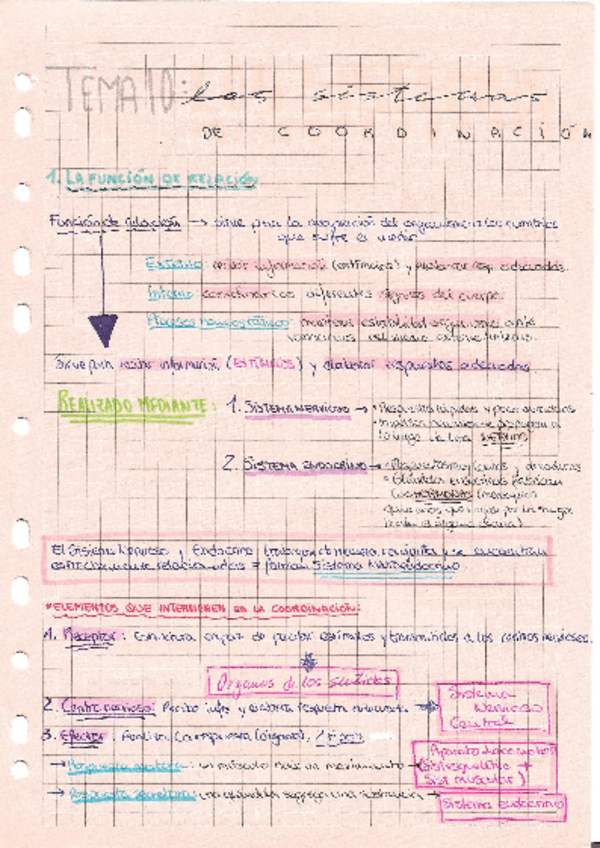 TEMA 10: Los sistemas
DE COORDINACIÓN
1. LA FUNCIÓN DE RELACIÓN
Función de relación → sirve para la adaptación del organismo a los cambios
que sufre el medio
Externo: recibir información (estímulos) y elaborar resp. adecuadas.
Interno: coordinar los diferentes órganos del cuerpo.
Procesos homeostáticos: mantener estabilidad organismo ante
variaciones del medio externo/interno.
Sirve para recibir información (ESTÍMULOS) y elaborar respuestas adecuadas.
REALIZADO MEDIANTE: 1. SISTEMA NERVIOSO → • Respuestas rápidas y poco duraderas
• Impulsos nerviosos se propagan a lo
largo de los NERVIOS
2. SISTEMA ENDOCRINO → • Respuestas lentas y duraderas
• Glándulas endocrinas fabrican
las HORMONAS (mensajeros
químicos que viajan por la sangre
hasta el órgano diana)
El Sistema Nervioso y Endocrino trabajan de manera conjunta y se encuentran
estrechamente relacionados = forman Sistema Neuroendocrino
*ELEMENTOS QUE INTERVIENEN EN LA COORDINACIÓN:
1. Receptor: Estructura capaz de captar estímulos y transmitirlos a los centros nerviosos.
Órganos de los sentidos
2. Centro nervioso: Recibe info y elabora respuesta adecuada →
Sistema
Nervioso
Central
3. Efector: Realiza la respuesta (órgano). 2 tipos
→ Respuesta motora: un músculo hace un movimiento →
Aparato Locomotor
(Sist. esquelético +
Sist. muscular)
→ Respuesta secretora: una glándula segrega una sustancia →
Sistema endocrino